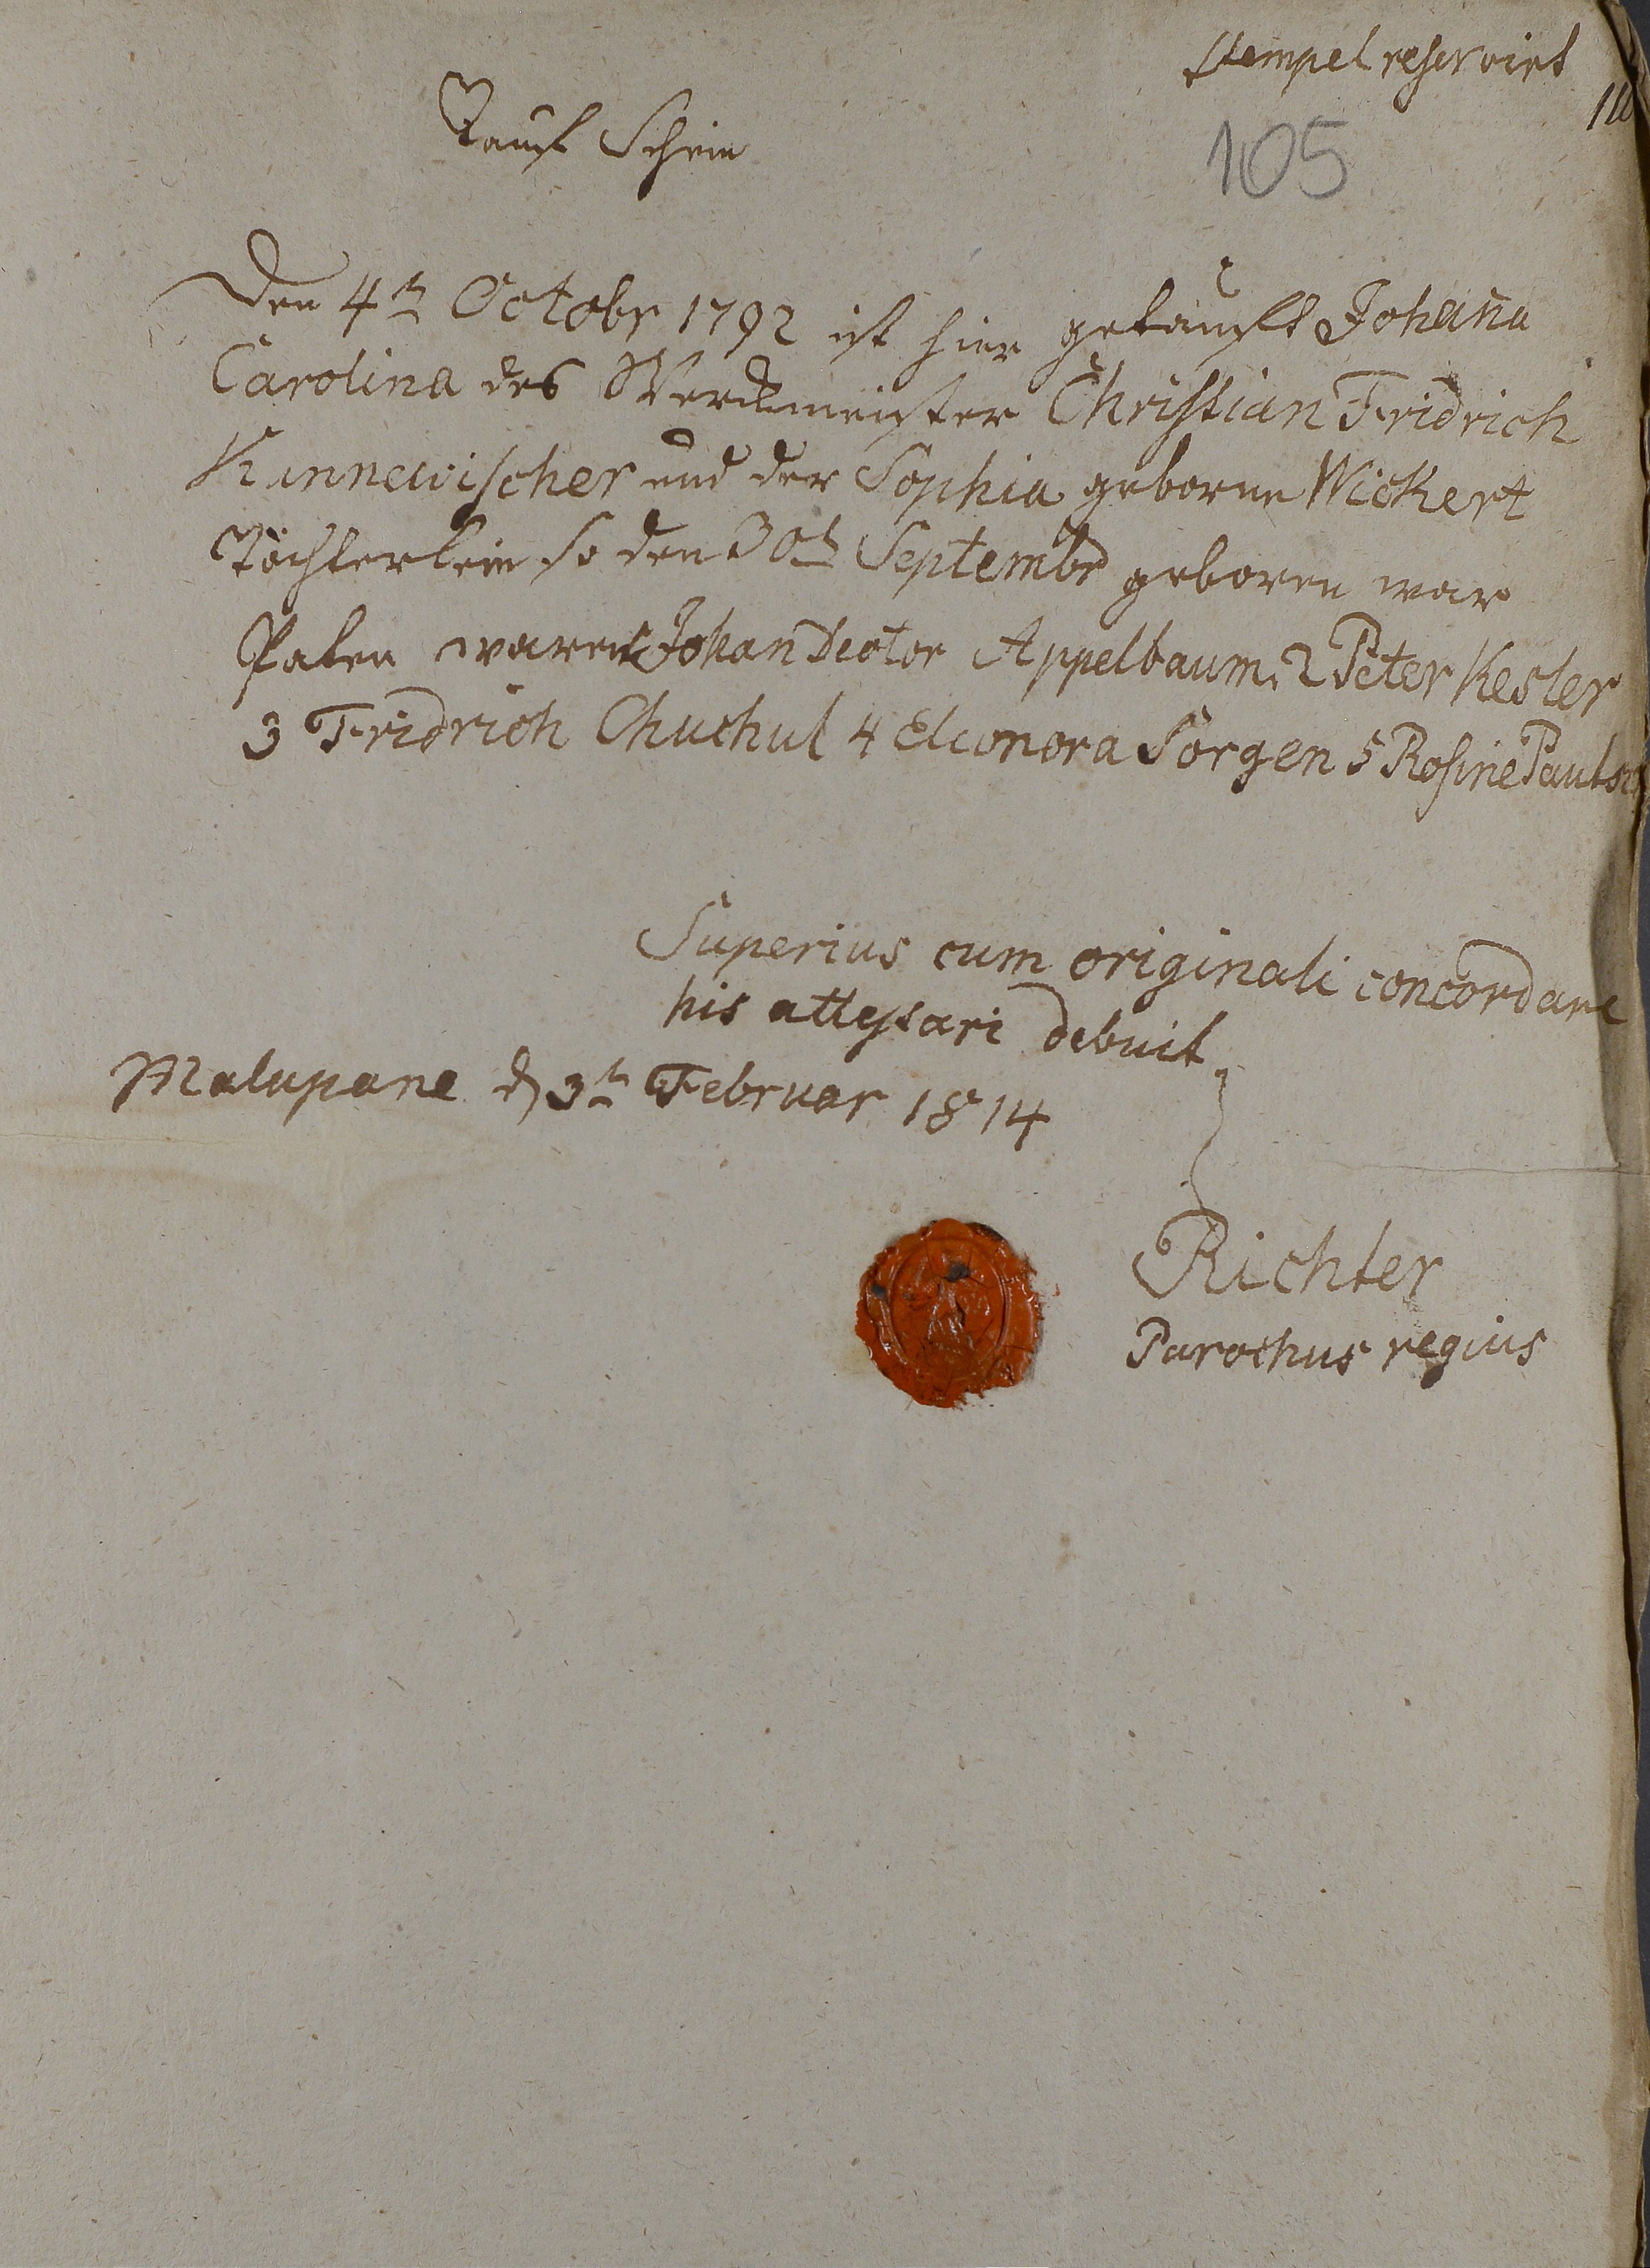 Stempel reservirt
105
Tauf Schein
Den 4tn Octobr 1792 ist hier getauft Johan̄a
Carolina des Werckmeister Christian Fridrich
Kinnewischer und der Sophia geborne Wickert
Töchterlein so den 30tn Septembr geboren war
Paten waren 1 Johan Appelbaum. 2 Peter Kesler
3 Fridrich Chuchul 4 Eleonora Sorgen 5 Rosine
Superius cum originali concordare
his attestari debuit.
Malapane d 3tn Februar 1814
Richter
Parochus regius